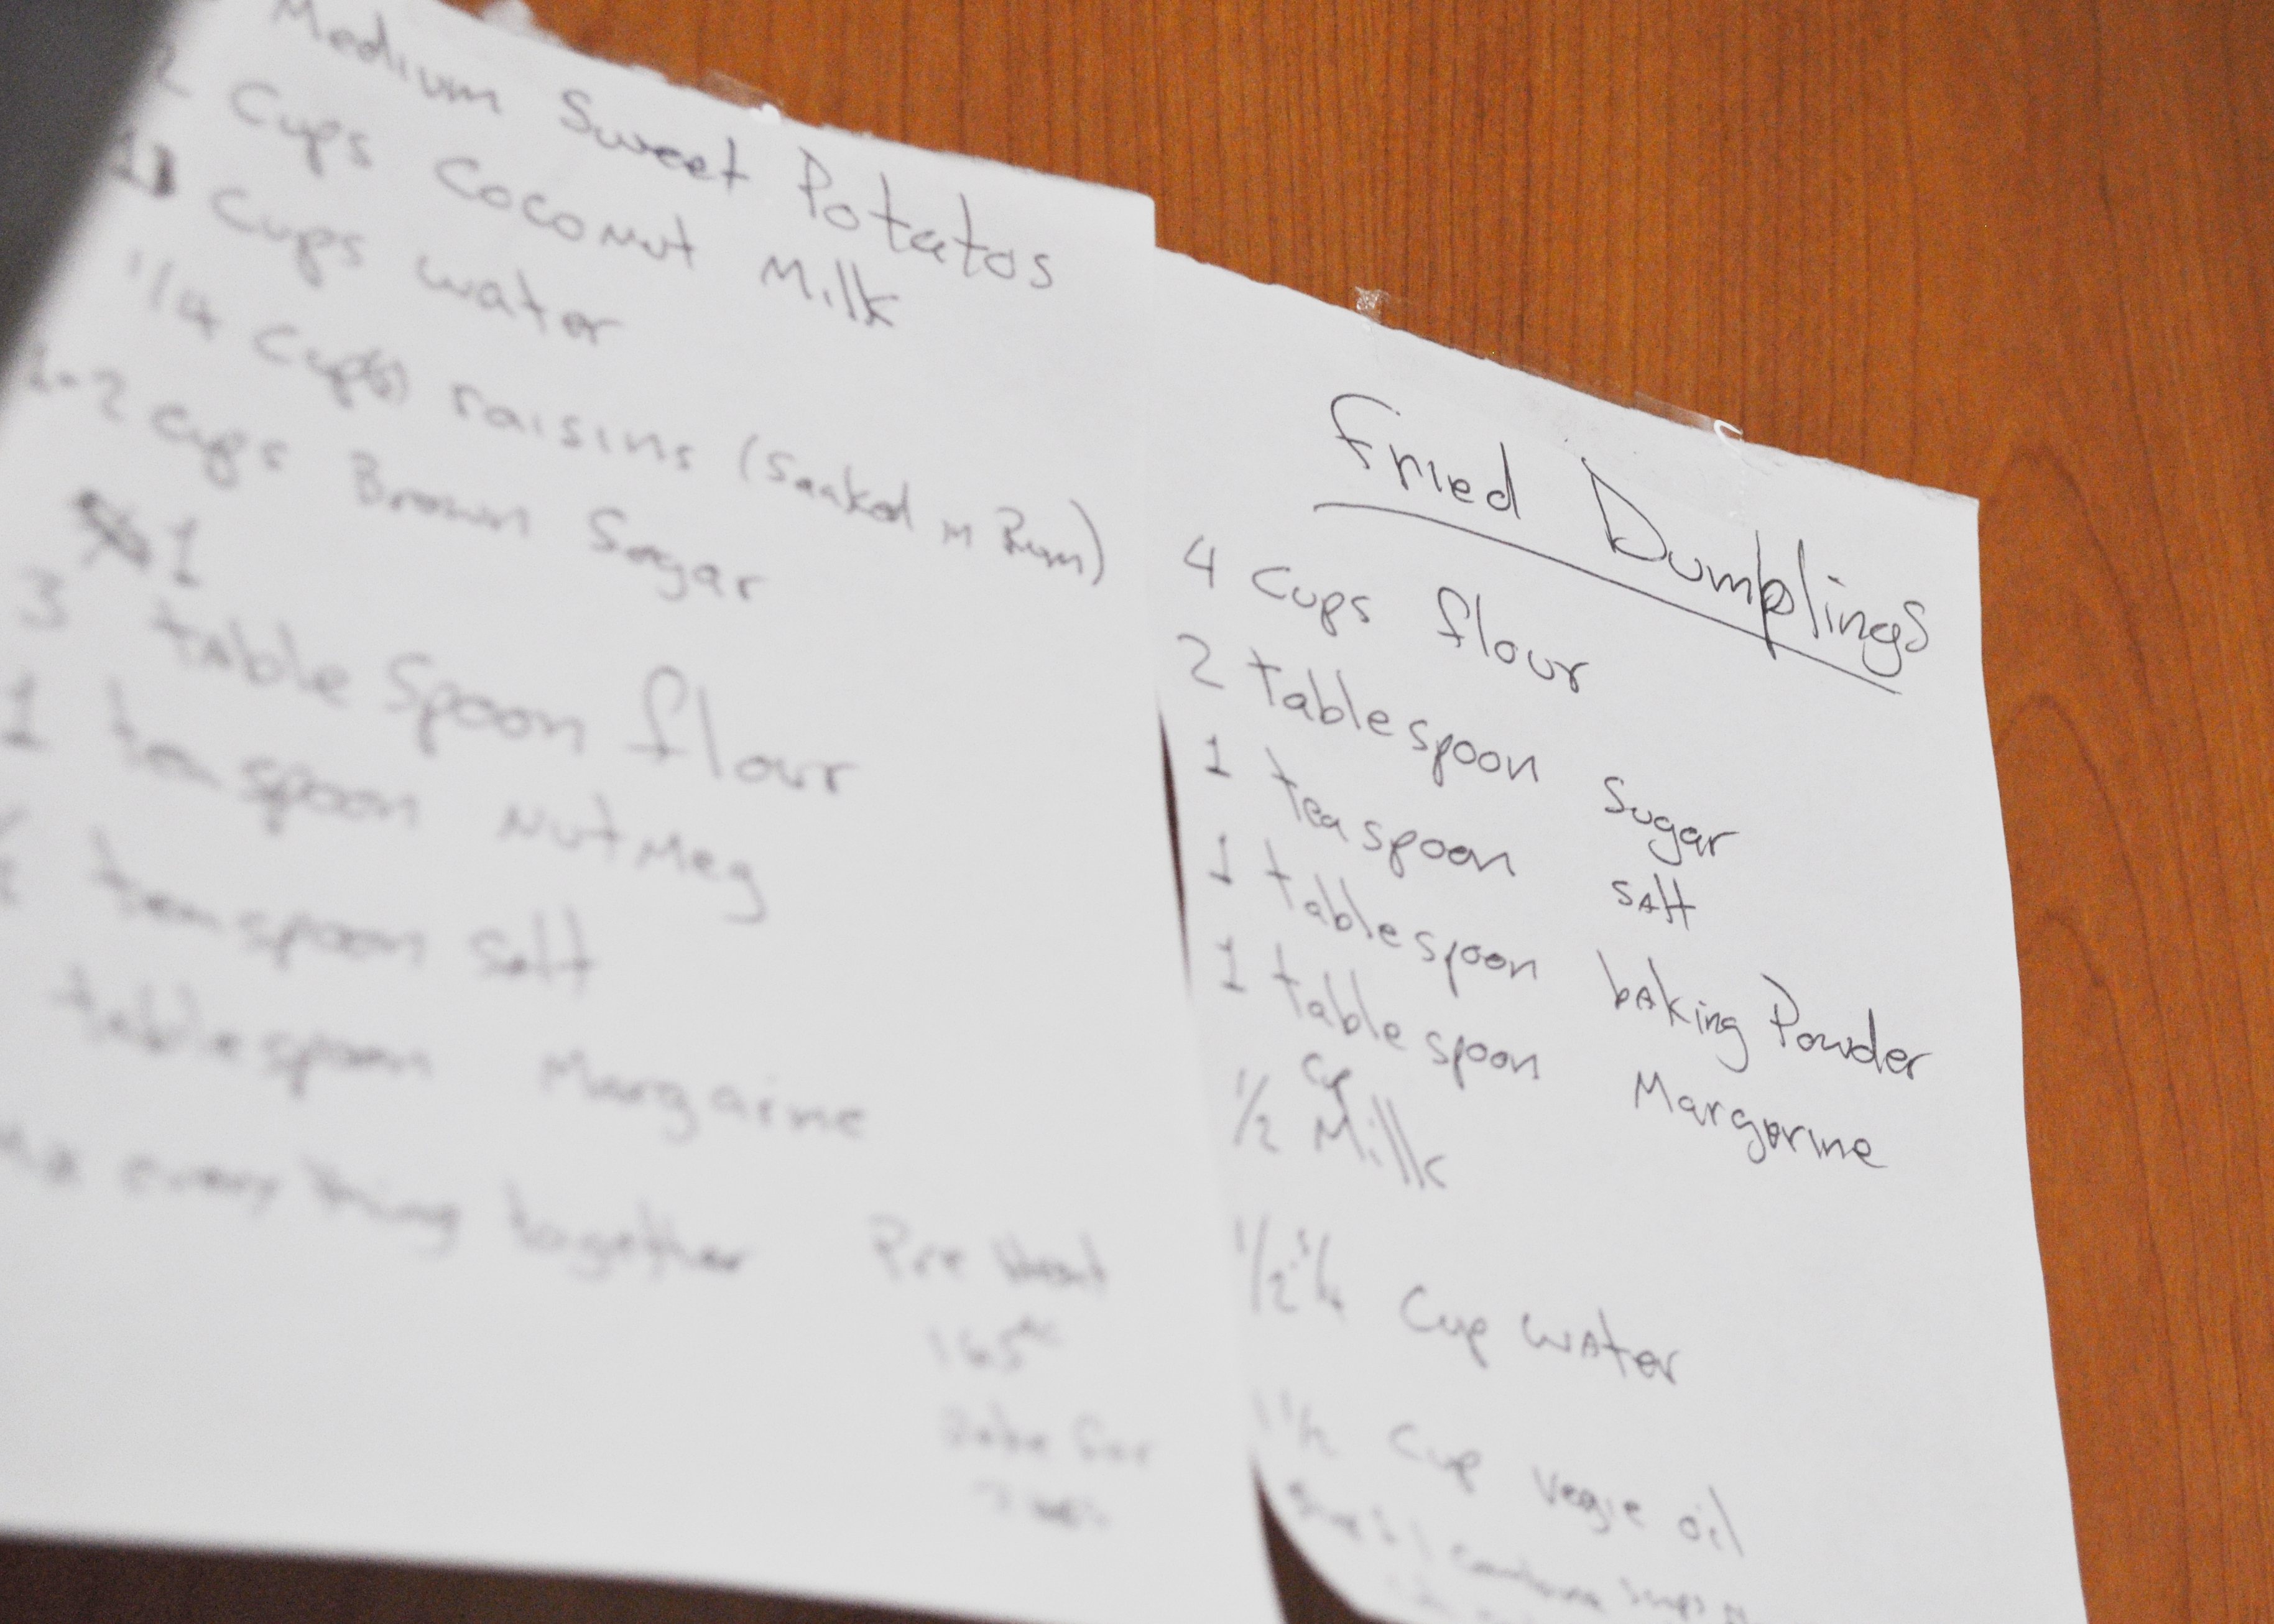 Medium Sweet Potatos
2 Cups Coconut Milk
1 Cups water
1/4 Cup(s) raisins (Soaked in Rum)
1-2 cups Brown Sugar
1
3 table Spoon flour
1 teaspoon NutMeg
teaspoon Salt
tablespoon Margarine
Mix everything together
Pre Heat
165
Bake for
Fried Dumplings
4 Cups flour
2 tablespoon Sugar
1 teaspoon SAlt
1 tablespoon bAking Powder
1 tablespoon Margerine
1/2 Cup Milk
1/2 1/4 Cup WAter
1 1/2 Cup Vegie oil
Step 1 Combine